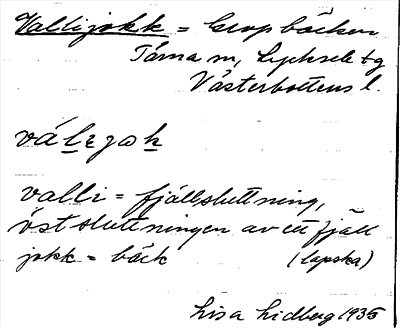 Vallijokk = Gropbäcken
Tärna sn, Lycksele tg
Västerbottens l.
váliʒok
valli = fjällsluttning,
östsluttningen av ett fjäll
jokk = bäck (lapska)
Lisa Lidberg 1935